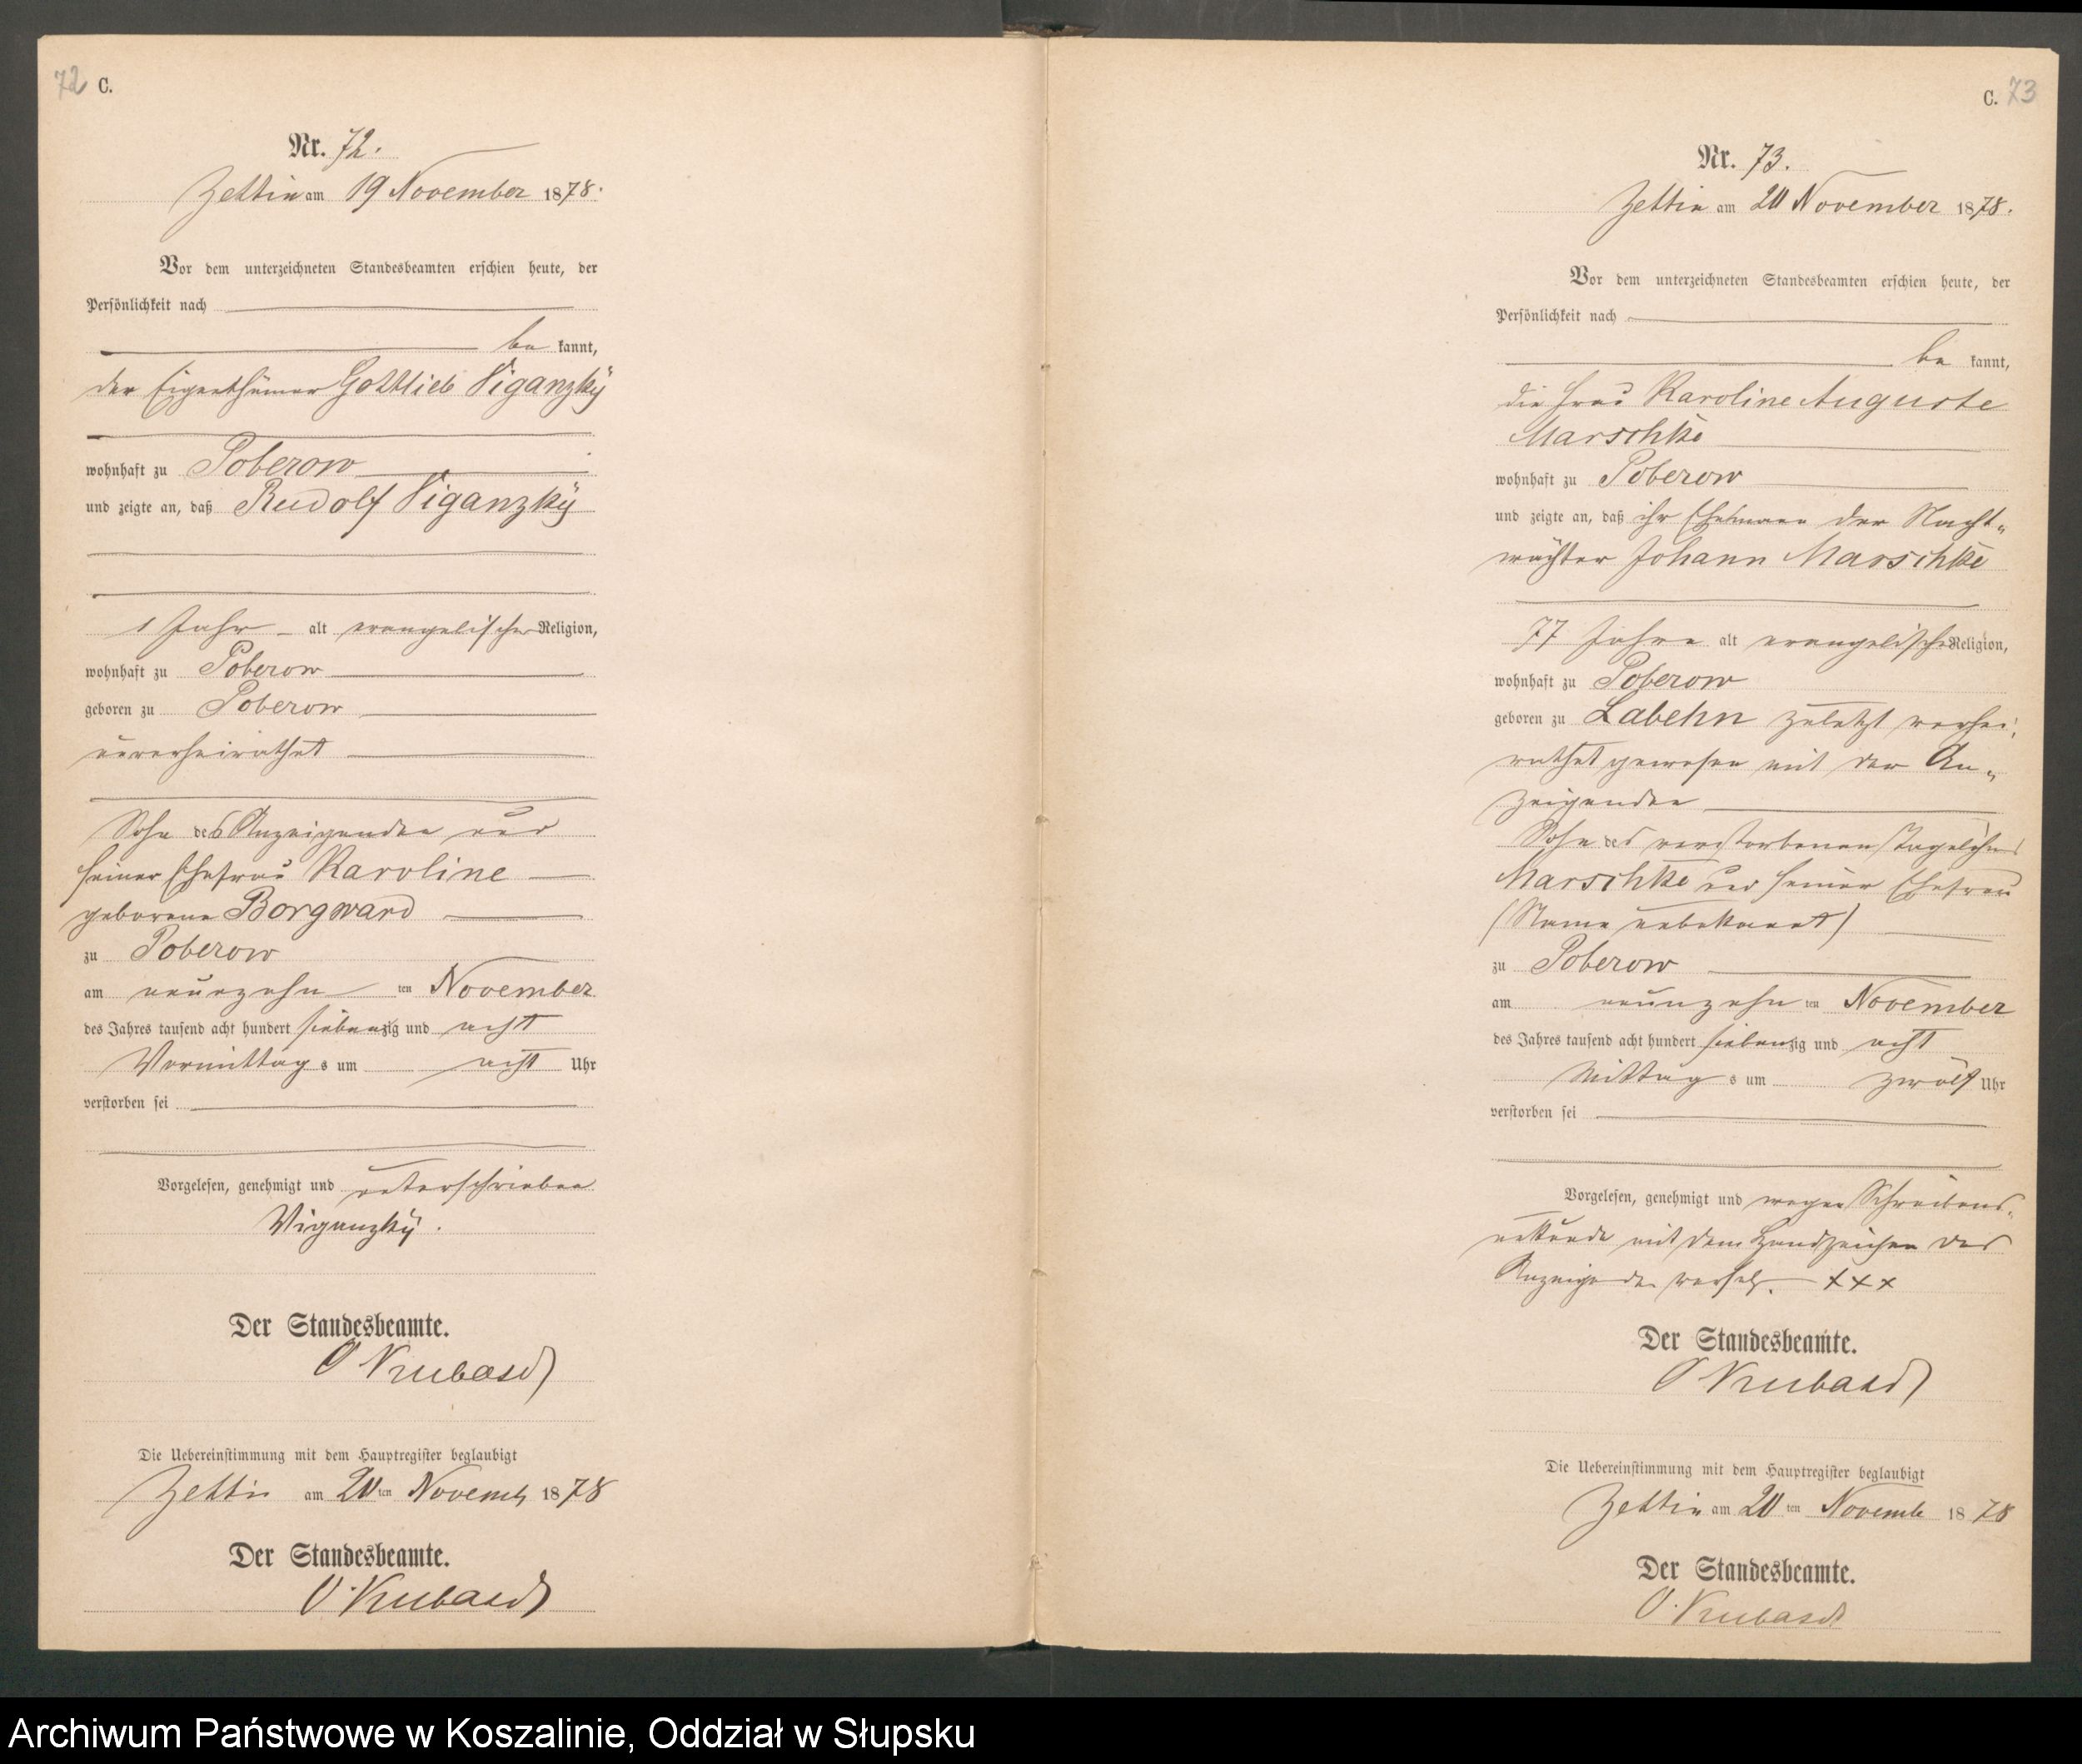 72 C.
Nr. 72.
Zettin am 19 November 1878.
Vor dem unterzeichneten Standesbeamten erschien heute, der
Persönlichkeit nach
be kannt,
der Eigenthümer Gottlieb Viganzky
wohnhaft zu Poberow
und zeigte an, daß Rudolf Viganzky
1 Jahr alt evangelischer Religion,
wohnhaft zu Poberow
geboren zu Poberow
unverheirathet
Sohn des Anzeigenden und
seiner Ehefrau Karoline
geborene Borgward
zu Poberow
am neunzehn ten November
des Jahres tausend acht hundert siebenzig und acht
Vormittag s um acht Uhr
verstorben sei
Vorgelesen, genehmigt und unterschrieben
Viganzky.
Der Standesbeamte.
O
Die Uebereinstimmung mit dem Hauptregister beglaubigt
Zettin am 20 ten Novemb 1878
Der Standesbeamte.
O.
C. 73
Nr. 73.
Zettin am 20 November 1878.
Vor dem unterzeichneten Standesbeamten erschien heute, der
Persönlichkeit nach
be kannt,
die Frau Karoline Auguste
Marschke
wohnhaft zu Poberow
und zeigte an, daß ihr Ehemann der Nacht-
wächter Johann Marschke
77 Jahre alt evangelischer Religion,
wohnhaft zu Poberow
geboren zu Labehn zuletzt verhei-
rathet gewesen mit der An-
zeigenden
Sohn des verstorbenen Tagelöhners
Marschke und seiner Ehefrau
(Name unbekannt)
zu Poberow
am neunzehn ten November
des Jahres tausend acht hundert siebenzig und acht
Mittag s um zwölf Uhr
verstorben sei
Vorgelesen, genehmigt und wegen Schreibens-
unkunde mit dem Handzeichen der
Anzeigenden versehen. +++
Der Standesbeamte.
O
Die Uebereinstimmung mit dem Hauptregister beglaubigt
Zettin am 20 ten Novemb 1878
Der Standesbeamte.
O.
Archiwum Państwowe w Koszalinie, Oddział w Słupsku